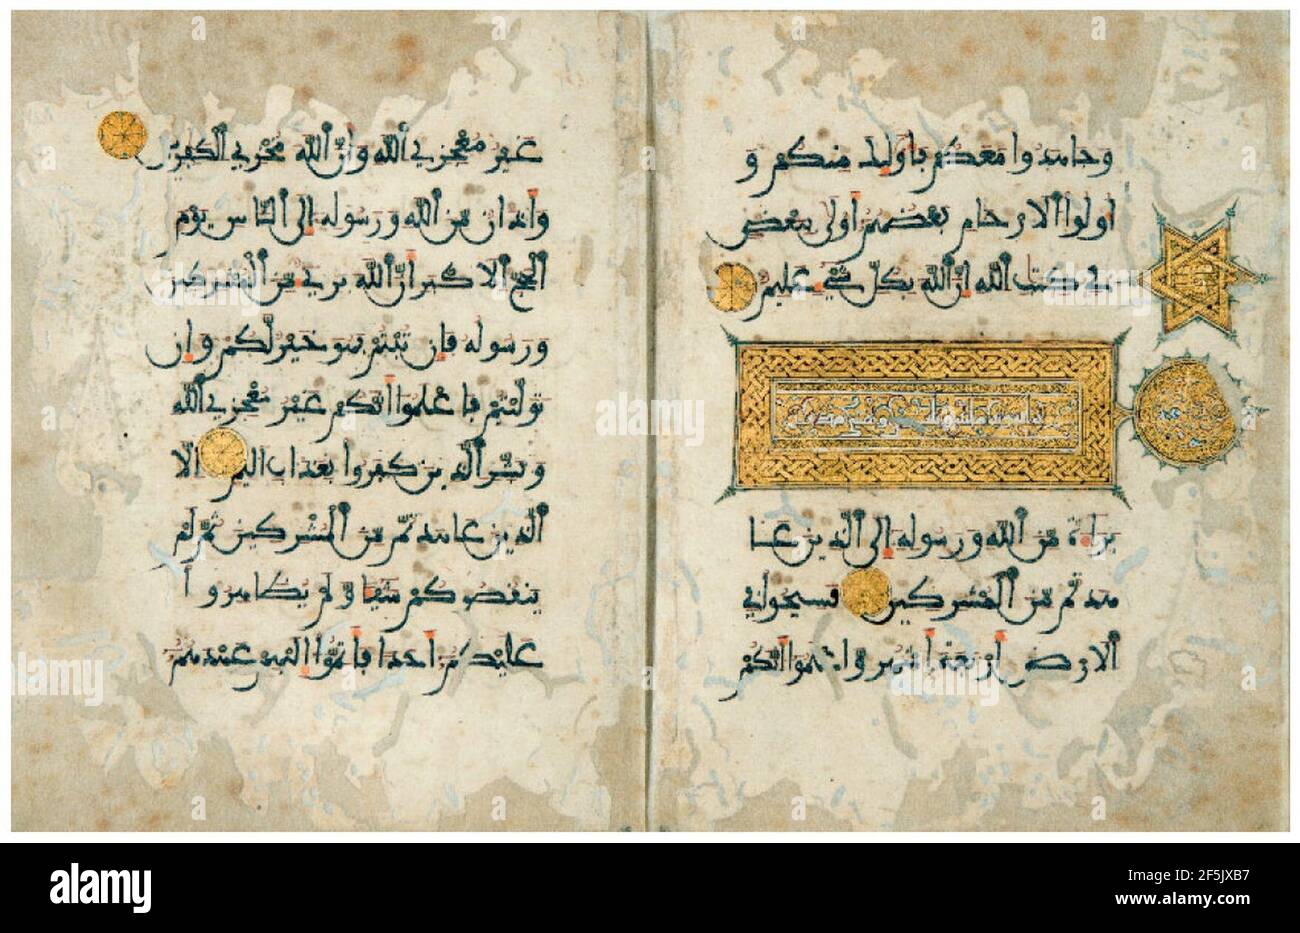 وجاهدوا معكم فأوليك منكم و
اولوا الارحام بعضهم أولى ببعض
في كتاب الله إن الله بكل شيء عليم
براءة من الله ورسوله إلى الذين عا
هدتم من المشركين فسيحوا في
الارض أربعة أشهر واعلموا انكم
غير معجزي الله وأن الله مخزي الكفرين
وأذان من الله ورسوله إلى الناس يوم
الحج الاكبر أن الله بريء من المشركين
ورسوله فإن تبتم فهو خير لكم وإن
توليتم فاعلموا أنكم غير معجزي الله
وبشر الذين كفروا بعذاب اليم الا
الذين عاهدتم من المشركين ثم لم
ينقصوكم شيئا ولم يظاهروا
عليكم أحدا فأتموا إليهم عهدهم
alamy
Image ID: 2F5JXB7
www.alamy.com